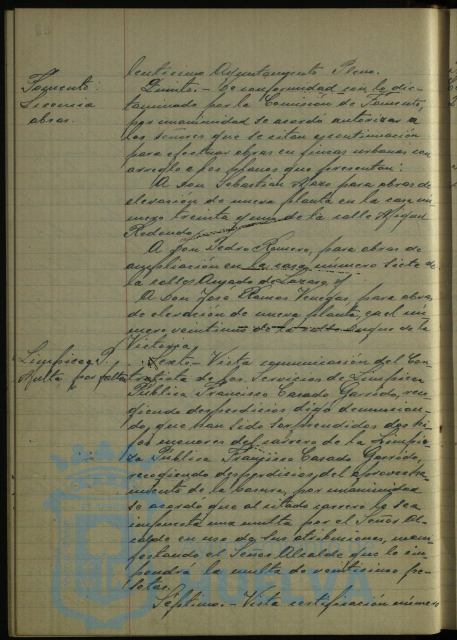 lentísimo Ayuntamiento Pleno.
Fomento:
Licencia
obras.
Quinto.- De conformidad con lo dic-
taminado por la Comisión de Fomento,
por unanimidad se acordó autorizar a
los señores que se citan a continuación
para efectuar obras en fincas urbanas con
arreglo a los planos que presentan:
A Don Sebastián para obras de
elevación de nueva planta en la casa nú-
mero treinta y uno de la calle Miguel
Redondo.
A Don Pedro Romero, para obras de
ampliación en la casa número siete de
la calle Amado de Lázaro, y
A Don José Ramos Venegas, para obras
de elevación de nueva planta, en el nú-
mero veintiuno de la calle Duque de la
Victoria.
Limpieza P.
Multa por faltas
Sexto.- Vista comunicación del Con-
tratista de los Servicios de Limpieza
Pública Francisco Casado Garrido, reco-
giendo desperdicios digo denuncian-
do, que han sido sorprendidos dos hi-
jos menores del carrero de la Limpie-
za Pública Francisco Casado Garrido,
recogiendo desperdicios del aprovecha-
miento de la basura, por unanimidad
se acordó que al citado carrero le sea
impuesta una multa por el Señor Al-
calde en uso de sus atribuciones, mani-
festando el Señor Alcalde que le im-
pondrá la multa de veinticinco pe-
setas.
Séptimo.- Vista certificación número
HUELVA